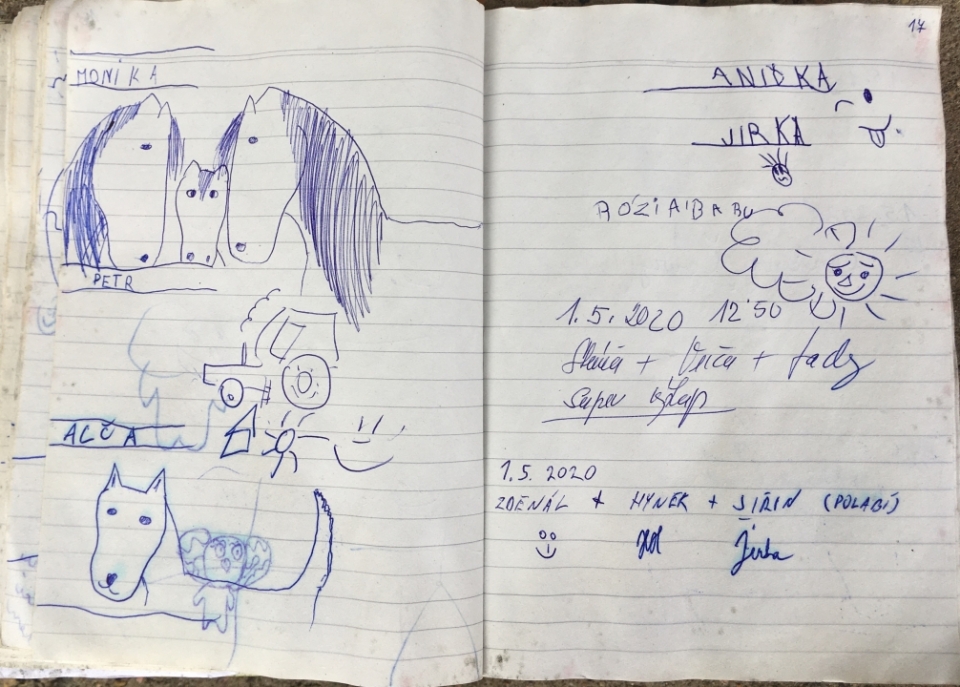 MONIKA
PETR
ALČA
17
ANIČKA
JIRKA
RÓZI A BABU
1.5.2020 12:50
+ + tady
super výšlap
1.5. 2020
ZDENÁL + HYNEK + JIŘIN (POLABÍ)
Jirka